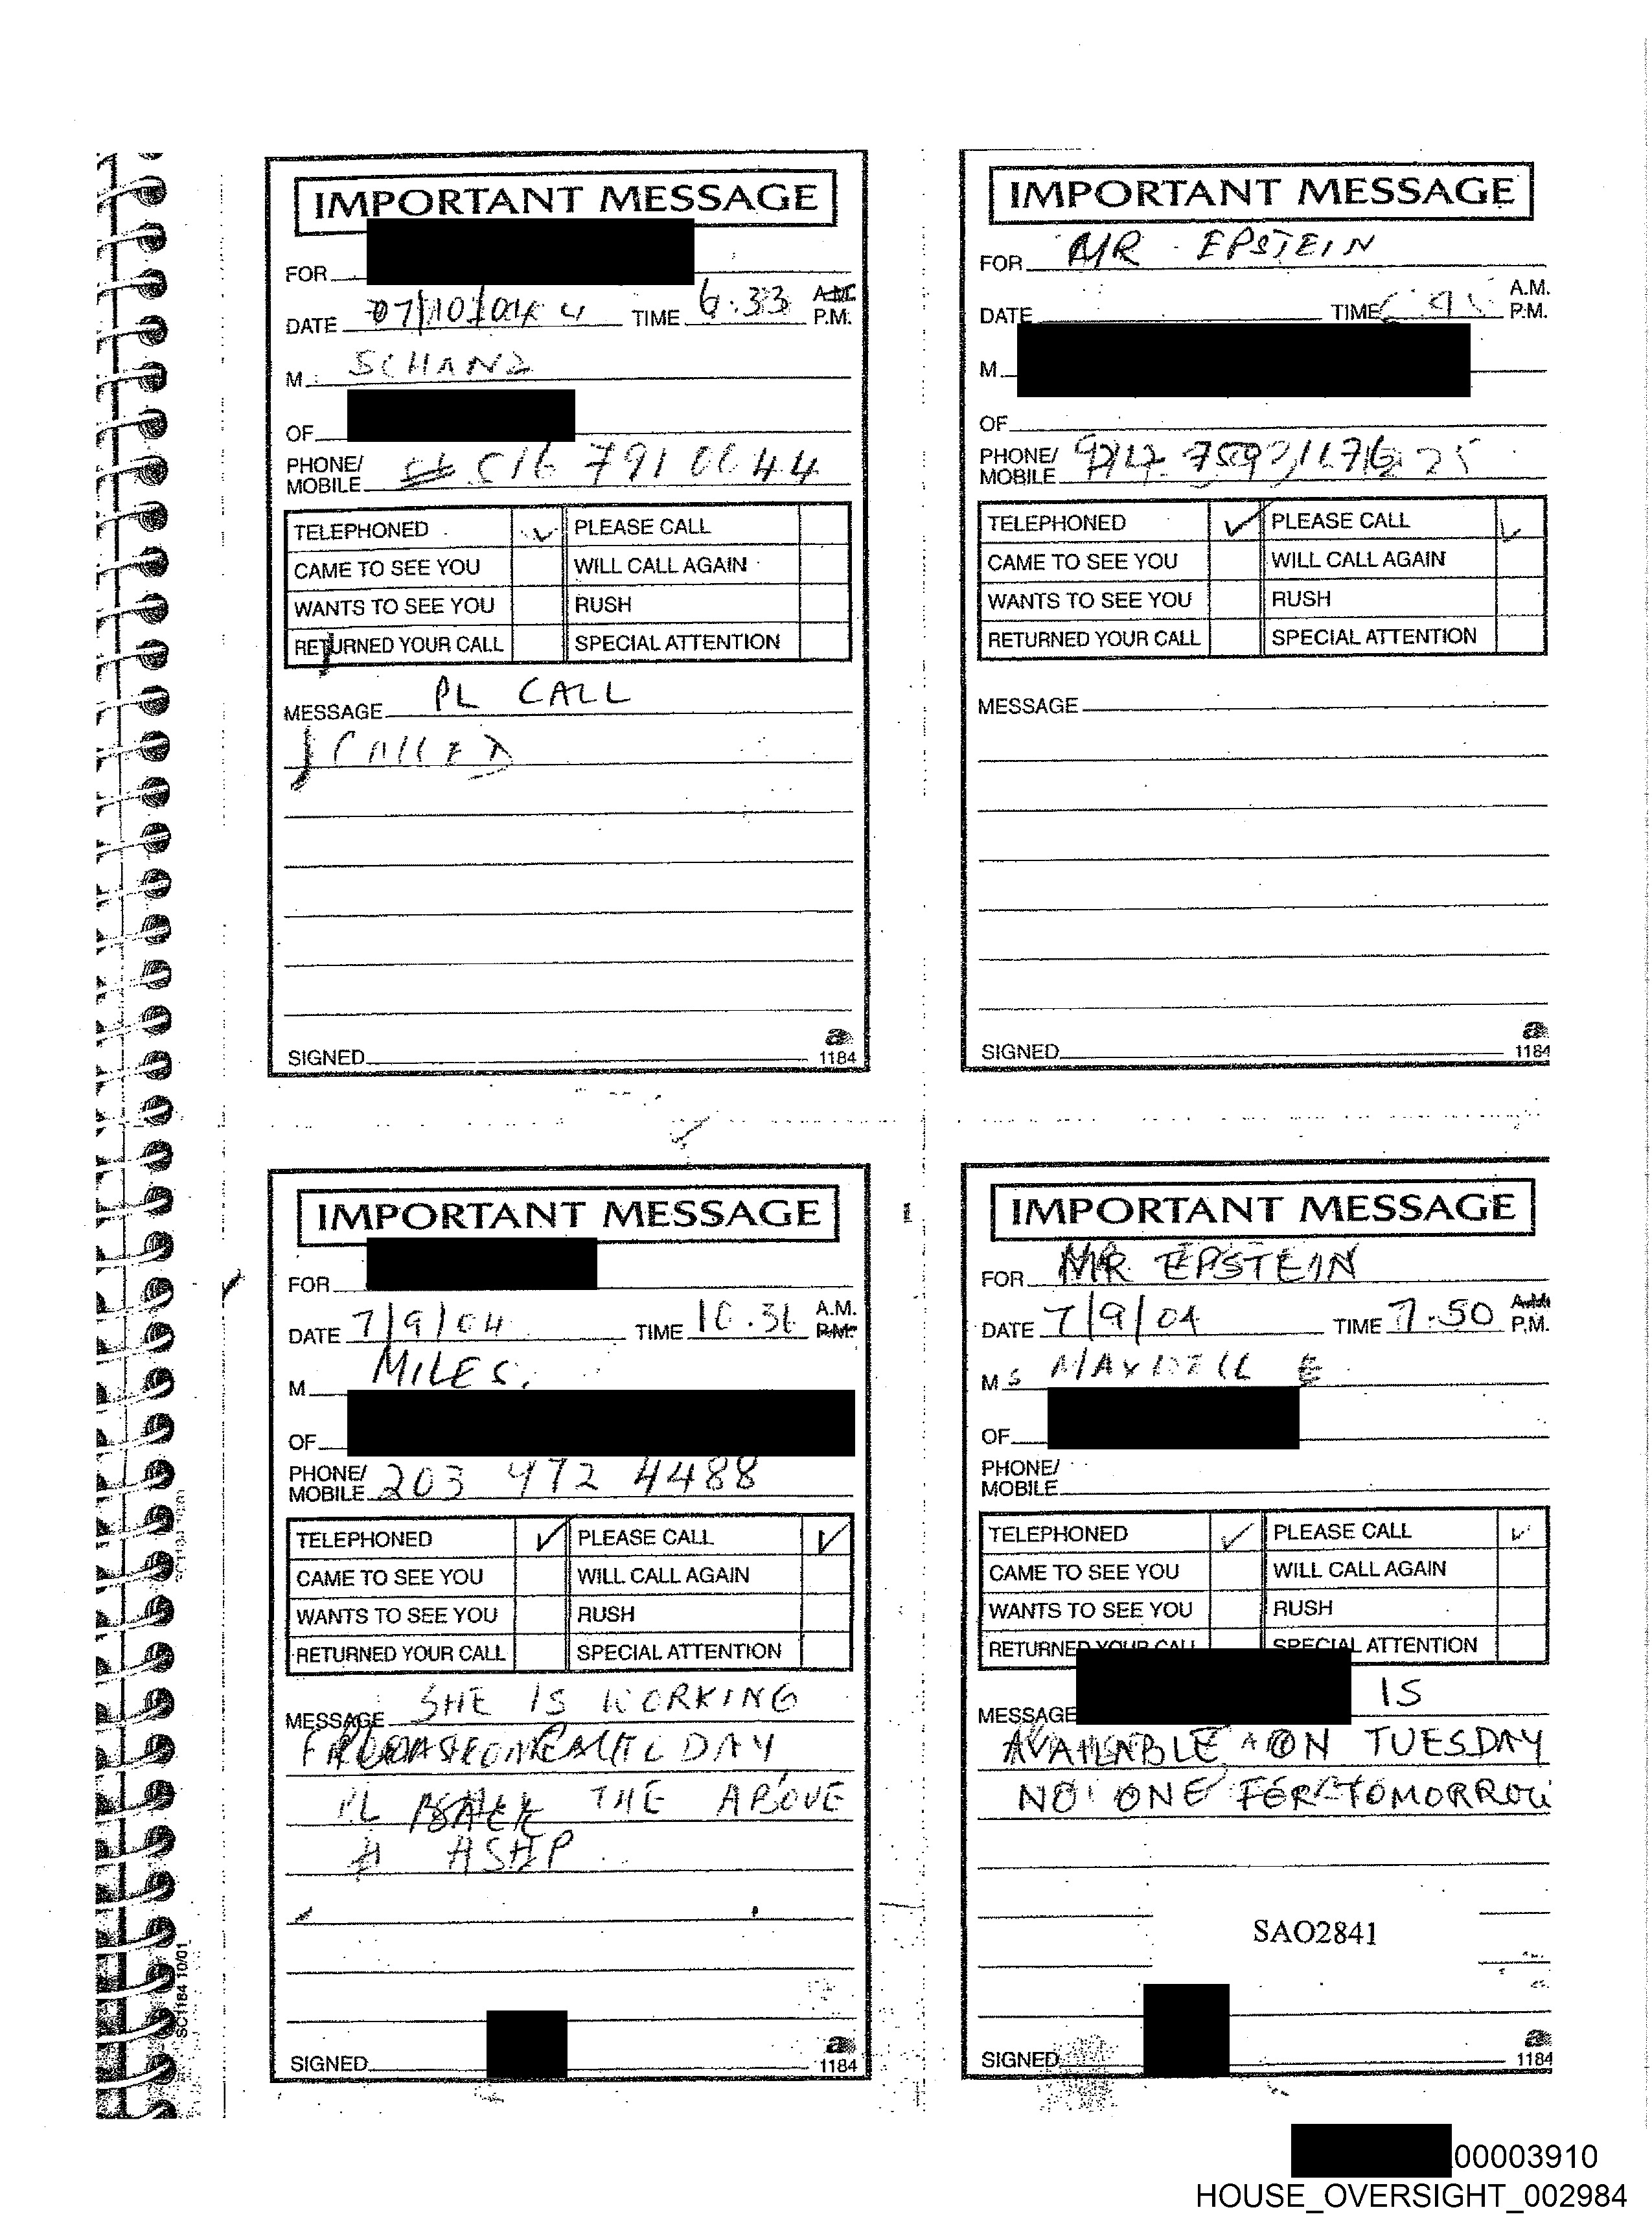 IMPORTANT MESSAGE
FOR
DATE 07/10/04 TIME 6:33 A.M. P.M.
M. SCHANZ
OF
PHONE/ 516 791 0044
MOBILE
TELEPHONED PLEASE CALL
CAME TO SEE YOU WILL CALL AGAIN
WANTS TO SEE YOU RUSH
RETURNED YOUR CALL SPECIAL ATTENTION
MESSAGE PL CALL
CALLED
SIGNED
a
1184
IMPORTANT MESSAGE
FOR MR EPSTEIN
DATE TIME A.M. P.M.
M
OF
PHONE/
MOBILE
TELEPHONED PLEASE CALL
CAME TO SEE YOU WILL CALL AGAIN
WANTS TO SEE YOU RUSH
RETURNED YOUR CALL SPECIAL ATTENTION
MESSAGE
SIGNED
a
1184
IMPORTANT MESSAGE
FOR
DATE 7/9/04 TIME A.M. P.M.
M MILES.
OF
PHONE/ 203 972 4488
MOBILE
TELEPHONED PLEASE CALL
CAME TO SEE YOU WILL CALL AGAIN
WANTS TO SEE YOU RUSH
RETURNED YOUR CALL SPECIAL ATTENTION
MESSAGE SHE IS WORKING
DAY
PL THE ABOVE
# ASAP
SIGNED
a
1184
SC1184 10/01
IMPORTANT MESSAGE
FOR MR EPSTEIN
DATE 7/9/04 TIME 7:50 A.M. P.M.
MS MAXWELL
OF
PHONE/
MOBILE
TELEPHONED PLEASE CALL
CAME TO SEE YOU WILL CALL AGAIN
WANTS TO SEE YOU RUSH
RETURNED YOUR CALL SPECIAL ATTENTION
MESSAGE IS
AVAILABLE ON TUESDAY
NO ONE FOR TOMORROW
SAO2841
SIGNED
a
1184
00003910
HOUSE_OVERSIGHT_002984